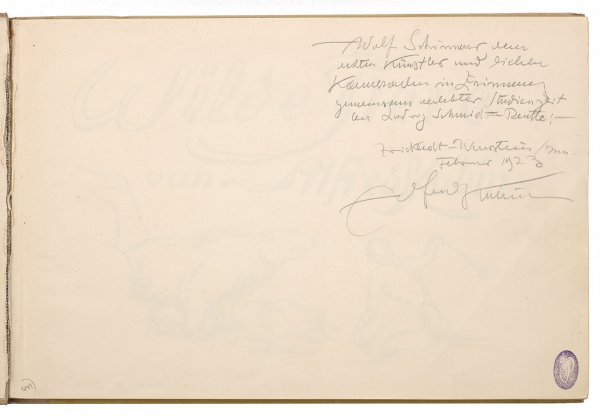 Wolf Schirmer dem
echten Künstler und lieben
Kameraden in Erinnerung
gemeinsam verlebter Studienzeit
bei Ludwig Schmidt-Reutte;—
Zwickledt-Wernstein/Inn.
Februar 1923
Alfred Kubin